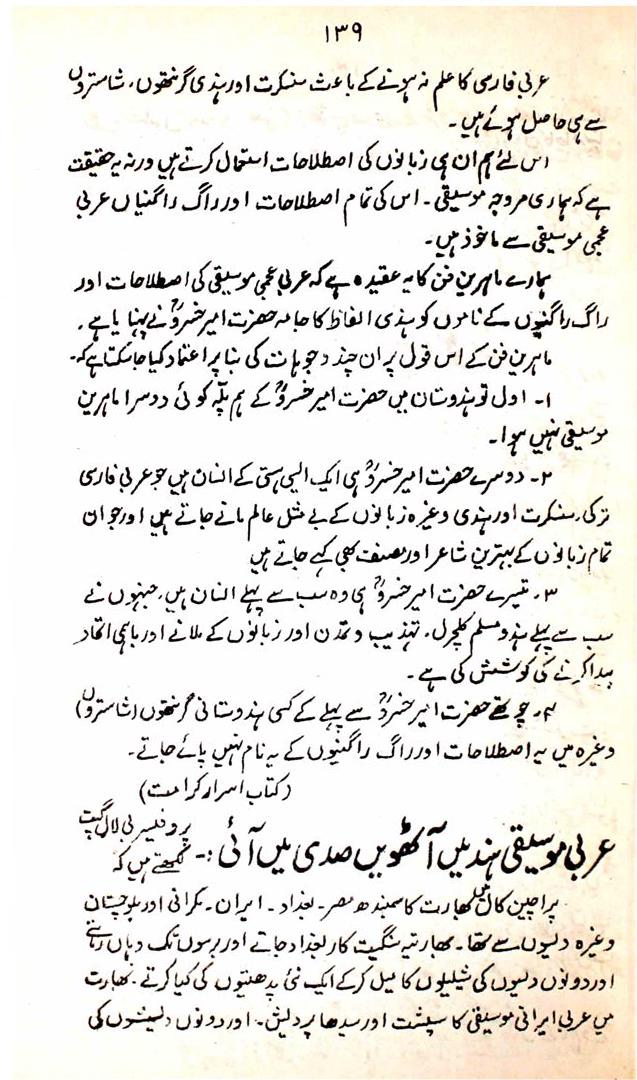 ۱۳۹
عربی فارسی کا علم نہ ہونے کے باعث سنسکرت اور ہندی گرنتھوں، شاستروں
سے ہی حاصل ہوئے ہیں۔
اس لئے ہم ان ہی زبانوں کی اصطلاحات استعمال کرتے ہیں ورنہ یہ حقیقت
ہے کہ ہماری مروجہ موسیقی۔ اس کی تمام اصطلاحات اور راگ راگنیاں عربی
عجمی موسیقی سے ماخوذ ہیں۔
ہمارے ماہرین فن کا یہ عقیدہ ہے کہ عربی عجمی موسیقی کی اصطلاحات اور
راگ راگنیوں کے ناموں کو ہندی الفاظ کا جامہ حضرت امیر خسروؒ نے پہنایا ہے۔
ماہرین فن کے اس قول پر ان چند وجوہات کی بنا پر اعتماد کیا جا سکتا ہے کہ۔
۱۔ اول تو ہندوستان میں حضرت امیر خسروؒ کے ہم پلہ کوئی دوسرا ماہرین
موسیقی نہیں ہوا۔
۲۔ دوسرے حضرت امیر خسروؒ ہی ایک ایسی ہستی کے انسان ہیں جو عربی فارسی
ترکی، سنسکرت اور ہندی وغیرہ زبانوں کے بے مثل عالم مانے جاتے ہیں اور جو ان
تمام زبانوں کے بہترین شاعر اور مصنف بھی کہے جاتے ہیں
۳۔ تیسرے حضرت امیر خسروؒ ہی وہ سب سے پہلے انسان ہیں، جنہوں نے
سب سے پہلے ہندو مسلم کلچرل، تہذیب و تمدن اور زبانوں کے ملانے اور باہمی اتحاد
پیدا کرنے کی کوشش کی ہے۔
۴۔ چوتھے حضرت امیر خسروؒ سے پہلے کے کسی ہندوستانی گرنتھوں (شاستروں)
وغیرہ میں یہ اصطلاحات اور راگ راگنیوں کے یہ نام نہیں پائے جاتے۔
(کتاب اسرار کرامت)
عربی موسیقی ہند میں آٹھویں صدی میں آئی :۔ پروفیسر بی لال گپت
لکھتے ہیں کہ
پراچین کال میں بھارت کا سمبندھ مصر۔ بغداد۔ ایران۔ مکرانی اور بلوچستان
وغیرہ دیسوں سے تھا۔ بھارتیہ سنگیت کار بغداد جاتے اور برسوں تک وہاں رہتے
اور دونوں دیسوں کی شیلیوں کا میل کرکے ایک نئی پدھتیوں کی کیا کرتے۔ بھارت
میں عربی ایرانی موسیقی کا سپشٹ اور سیدھا پردیش۔ اور دونوں دیشوں کی